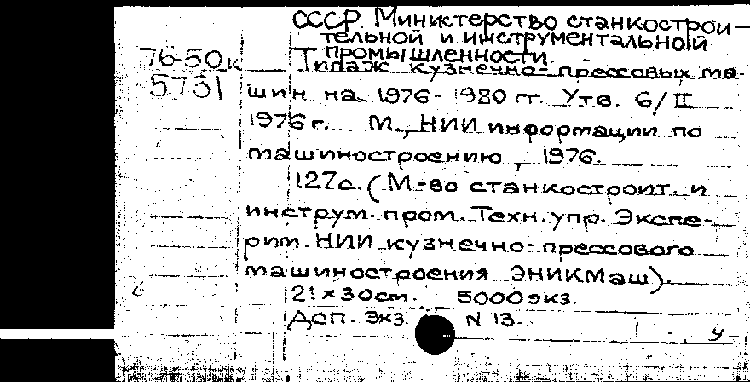 СССР. Министерство станкострои-
тельной и инструментальной
промышленности.
76-50к
5731
Типаж кузнечно-прессовых ма-
шин на 1976-1980 гг. Утв. 6/II
1976 г. М., НИИ информации по
машиностроению, 1976.
127с. (М-во станкостроит. и
инструм. пром. Техн. упр. Экспе-
рим. НИИ кузнечно-прессового
машиностроения ЭНИКМаш).
21×30см. 5000 экз.
Доп. экз. N 13.
у